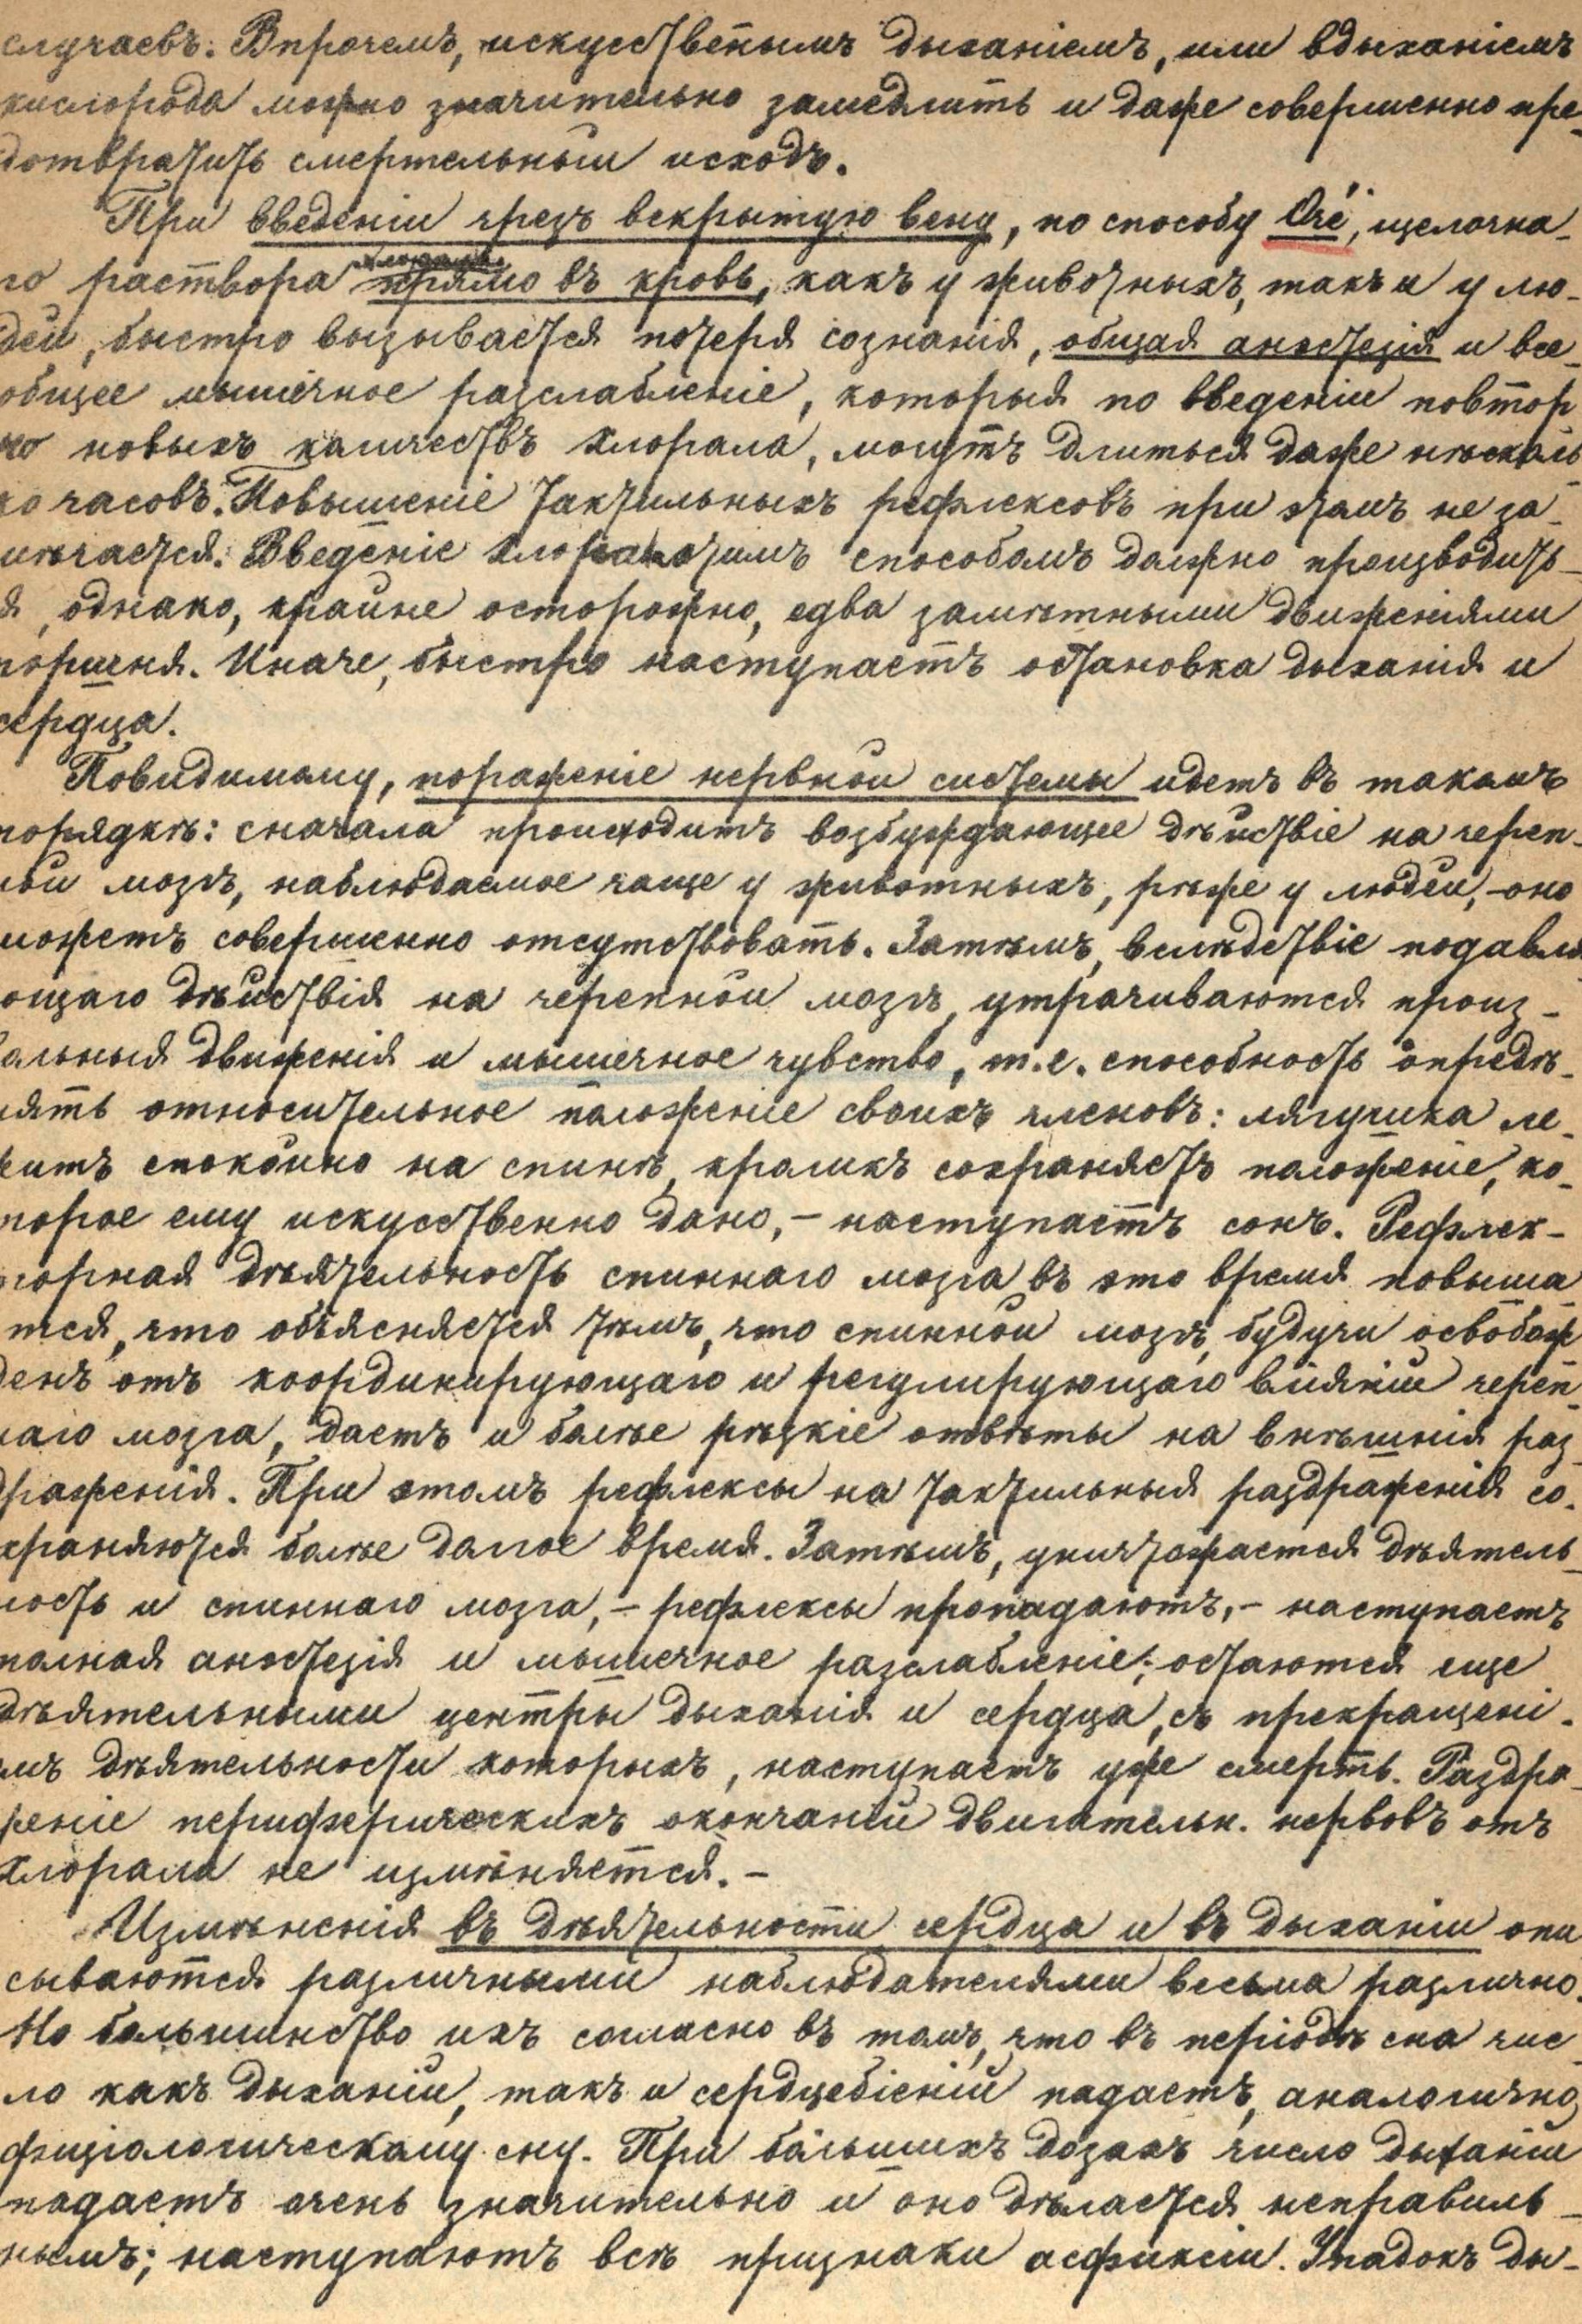 случаевъ. Впрочемъ, искусственымъ дыханіемъ, или вдыханіемъ
кислорода можно значительно замедлить и даже совершенно пре-
дотвратить смертельный исходъ.
При введеніи чрезъ вскрытую вену, по способу Oré, щелочна-
го раствора хлорала прямо въ кровь, какъ у животныхъ, такъ и у лю-
дей, быстро вызывается потеря сознанія, общая анэстезія и все-
общее мышечное разслабленіе, которыя по введеніи повтор
но новыхъ количествъ хлорала, могутъ длиться даже нѣсколь
ко часовъ. Повышеніе тактильныхъ рефлексовъ при этомъ не за-
мѣчается. Введеніе хлорала этимъ способомъ должно производить-
я, однако, крайне осторожно, едва замѣтными движеніями
поршня. Иначе, быстро наступаетъ остановка дыханія и
сердца.
Повидимому, пораженіе нервной системы идетъ въ такомъ
порядкѣ: сначала происходитъ возбуждающее дѣйствіе на череп-
ной мозгъ, наблюдаемое чаще у животныхъ, рѣже у людей, - оно
можетъ совершенно отсутствовать. Затѣмъ, вслѣдствіе подавля
ющаго дѣйствія на черепной мозгъ, утрачиваются произ-
ольныя движенія и мышечное чувство, т.е. способность опредѣ-
лять относительное положеніе своихъ членовъ: лягушка ле-
житъ спокойно на спинѣ, кроликъ сохраняетъ положеніе, ко-
торое ему искусственно дано, - наступаетъ сонъ. Рефлек-
торная дѣятельность спиннаго мозга въ это время повыша
тся, что объясняется тѣмъ, что спинной мозгъ, будучи освобож
денъ отъ координирующаго и регулирующаго вліяніи череп
наго мозга, даетъ и болѣе рѣзкіе отвѣты на внѣшнія раз-
драженія. При этомъ рефлексы на тактильныя раздраженія со-
храняются болѣе долгое время. Затѣмъ, уничтожается дѣятель-
ность и спиннаго мозга, - рефлексы пропадаютъ, - наступаетъ
полная анэстезія и мышечное разслабленіе; остаются еще
дѣятельными центры дыханія и сердца, съ прекращені-
мъ дѣятельности которыхъ, наступаетъ уже смерть. Раздра-
женіе периферическихъ окончаній двигательн. нервовъ отъ
хлорала не измѣняется. -
Измѣненія въ дѣятельности сердца и въ дыханіи опи
сываются различными наблюдателями весьма различно.
Но большинство ихъ согласно въ томъ, что въ періодѣ сна чис-
ло какъ дыханій, такъ и сердцебіеній падаетъ, аналогично
физіологическому сну. При большихъ дозахъ число дыханій
падаетъ очень значительно и оно дѣлается неправиль-
нымъ; наступаютъ всѣ признаки асфиксіи. Упадокъ ды-